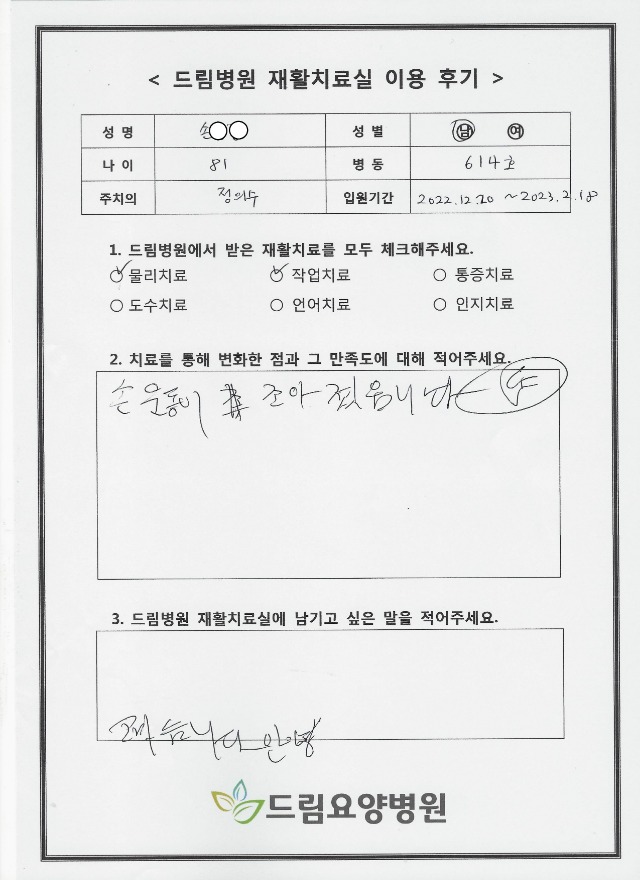 < 드림병원 재활치료실 이용 후기 >
성 명 손○○ 성 별 남 여
나 이 81 병 동 614호
주치의 정의수 입원기간 2022.12.20 ~2023.2.18
1. 드림병원에서 받은 재활치료를 모두 체크해주세요.
물리치료 작업치료 통증치료
도수치료 언어치료 인지치료
2. 치료를 통해 변화한 점과 그 만족도에 대해 적어주세요.
손 운동이 조아 젔읍니다
3. 드림병원 재활치료실에 남기고 싶은 말을 적어주세요.
안녕
드림요양병원